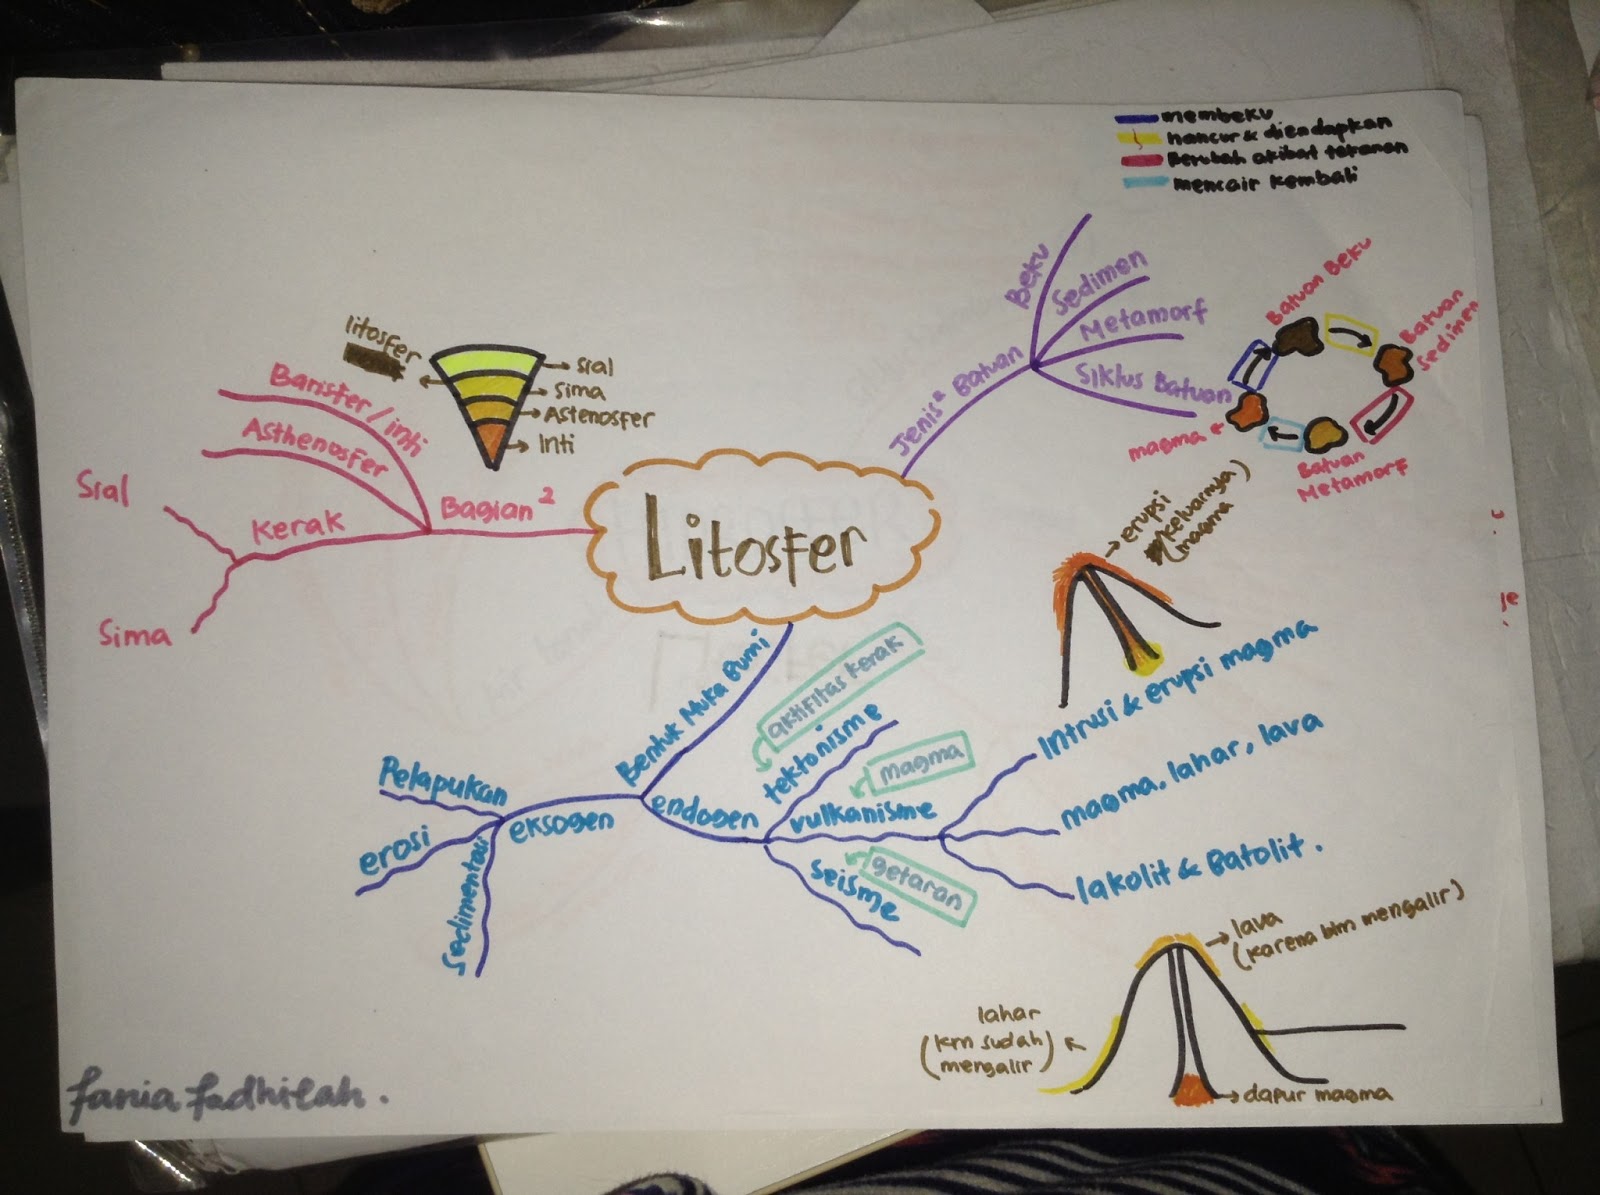 membeku
hancur & diendapkan
Berubah akibat tekanan
mencair kembali
Litosfer
Jenis² Batuan
Beku
Sedimen
Metamorf
Siklus Batuan
Batuan Beku
Batuan
Sedimen
Batuan
Metamorf
magma
litosfer
sial
sima
Astenosfer
Inti
Bagian²
Barisfer/inti
Asthenosfer
Kerak
Sial
Sima
erupsi
(keluarnya
magma)
Bentuk Muka Bumi
eksogen
Pelapukan
erosi
Sedimentasi
endogen
tektonisme
aktifitas kerak
vulkanisme
magma
seisme
getaran
Intrusi & erupsi magma
magma, lahar, lava
lakolit & Batolit.
lava
(karena blm mengalir)
lahar
(krn sudah
mengalir)
dapur magma
fania fadhilah.